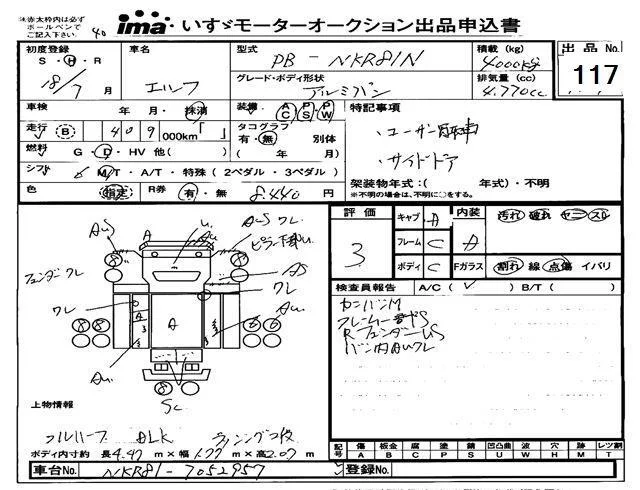 ※赤太枠内は必ず
ボールペンで
ご記入下さい。
40
ima いすゞモーターオークション出品申込書
初度登録 車名 型式 PB - NKR81N 積載 (kg) 4000kg 出品 No. 117
S・H・R 18/7 月 エルフ グレード・ボディ形状 アルミバン 排気量 (cc) 4.770cc
車検 年・月・抹消 装備 AC PS PW 特記事項
走行 (B) 409 000km「 」 タコグラフ 有・無 別体
・ユーザー買取車
燃料 G・D・HV 他( ) ( 年 月)
・サイドドア
シフト 6 M/T・A/T・特殊 ( 2ペダル・3ペダル )
架装物年式:( 年式)・不明
色 指定 R券 有・無 8.440 円
※不明の場合は、不明に○をする。
評価 3
キャブ A 内装 A 汚れ 破れ ヤニ スレ
フレーム C
ボディ C Fガラス 割れ 線 点傷 イバリ
検査員報告 A/C ( ✓ ) B/T ( )
カンバンM
R フェンダーUS
バン内AUワレ
AuS
フェンダーワレ
ワレ
Au
A
U
AS
ワレ
Au
A
8 8 8 6 6 8
Sc
上物情報
フルハーフ
ボディ内寸約 長4.47m×幅1.77m×高2.07m
記号 傷 板金 腐 塗 錆 凹凸曲 波 穴 跡 レツ割
A B C P S U W H M T
車台No. NKR81-7052957 登録No.